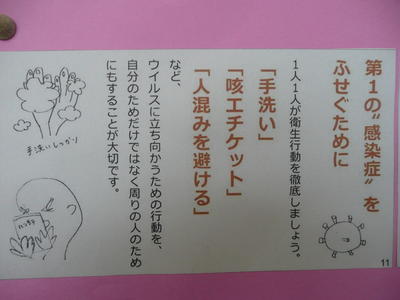 第1の〝感染症〟を
ふせぐために
1人1人が衛生行動を徹底しましょう。
「手洗い」
「咳エチケット」
「人混みを避ける」
など、
ウイルスに立ち向かうための行動を、
自分のためだけではなく周りの人のため
にもすることが大切です。
手洗いしっかり
11